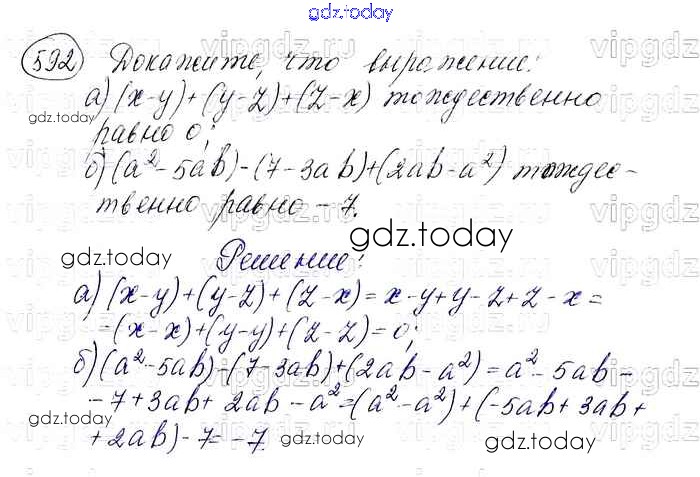 gdz.today
592 Докажите, что выражение:
а) (x-y)+(y-z)+(z-x) тождественно
gdz.today
равно 0;
б) (a²-5ab)-(7-3ab)+(2ab-a²) тождес-
твенно равно -7.
gdz.today
gdz.today
Решение:
а) (x-y)+(y-z)+(z-x)=x-y+y-z+z-x=
-(x-x)+(y-y)+(z-z)=0;
б) (a²-5ab)-(7-3ab)+(2ab-a²)=a²-5ab-
-7+3ab+2ab-a²=(a²-a²)+(-5ab+3ab+
gdz.today
+2ab)-7=-7
gdz.today
gdz.today